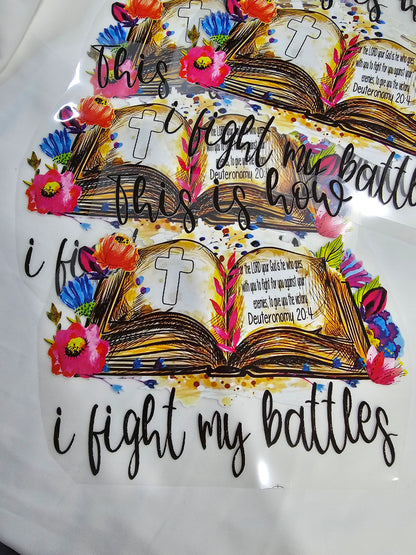 This
the LORD your God is he who goes
with you to fight for you against your
enemies, to give you the victory.
Deuteronomy 20:4
i fight my battles
Deuteronomy 20:
This is how
i fi
or the LORD your God is he who goes
with you to fight for you against your
enemies, to give you the victory.
Deuteronomy 20:4
i fight my battles